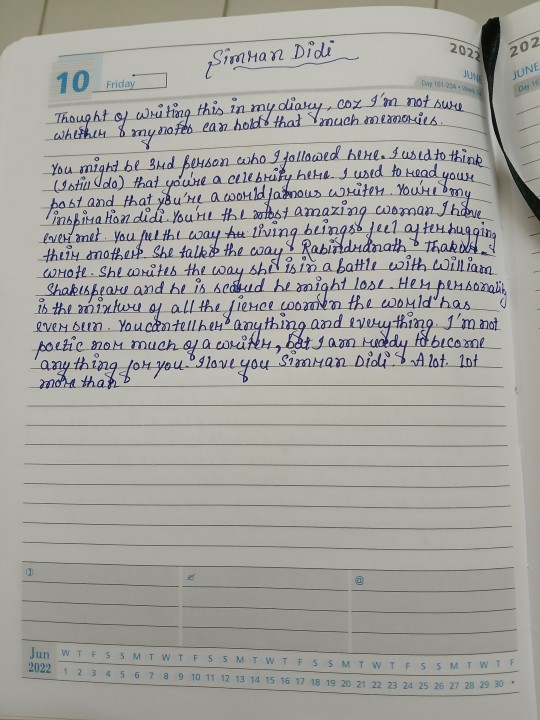 Simran Didi
2022
JUN
10
Friday
Day 161-204
202
JUNE
Day 16
Thought of writing this in my diary, coz I'm not sure
whether my notes can hold that much memories.
You might be 3rd person who I followed here. I used to think
(I still do) that you're a celebrity here. I used to read your
post and that you're a world famous writer. You're my
inspiration didi. You're the most amazing woman I have
ever met. You feel the way living beings feel after hugging
their mother. She talks the way Rabindranath Thakur
wrote. She writes the way she is in a battle with William
Shakespeare and he is scared he might lose. Her personality
is the mixture of all the fierce women the world has
ever seen. You can tell her anything and everything. I'm not
poetic nor much of a writer, but I am ready to become
anything for you. I love you Simran Didi. A lot. lot
more than
Jun W T F S S M T W T F S S M T W T F S S M T W T F S S M T W T F
2022 1 2 3 4 5 6 7 8 9 10 11 12 13 14 15 16 17 18 19 20 21 22 23 24 25 26 27 28 29 30 •